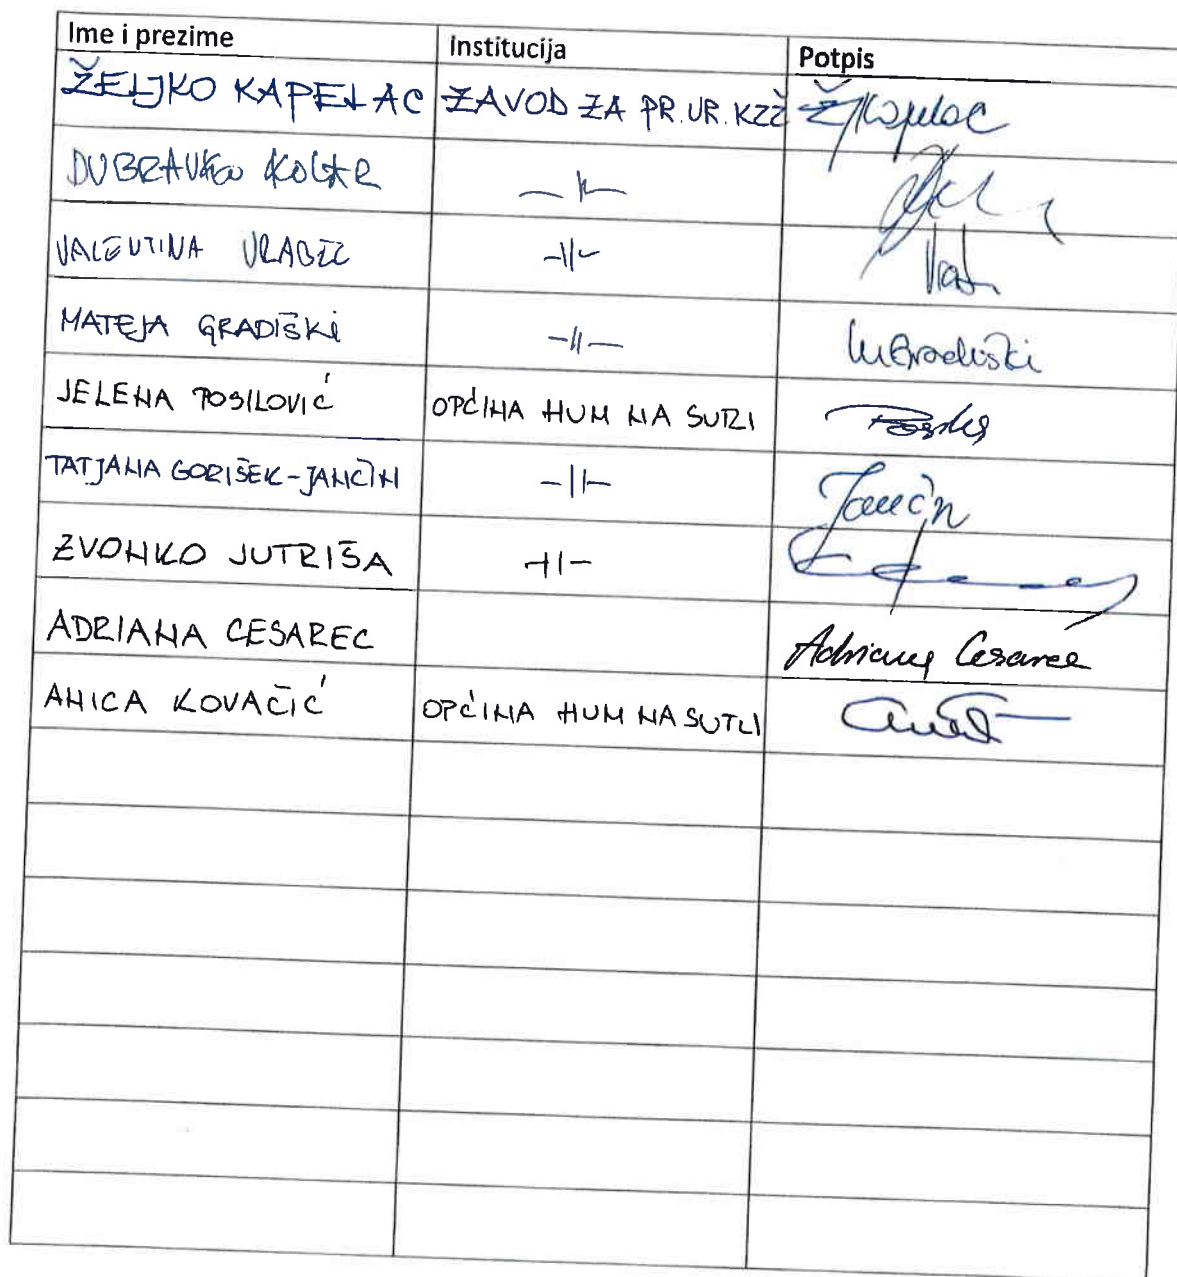 Ime i prezime Institucija Potpis
ŽELJKO KAPELAC ZAVOD ZA PR. UR. KZŽ ŽKapelac
DUBRAVKO KOLAR —||—
VALENTINA VRABEC —||—
MATEJA GRADIŠKI —||— MGradiški
JELENA POSILOVIĆ OPĆINA HUM NA SUTLI
TATJANA GORIŠEK-JANČIN —||— Jančin
ZVONKO JUTRIŠA —||—
ADRIANA CESAREC Adriana Cesarec
ANICA KOVAČIĆ OPĆINA HUM NA SUTLI